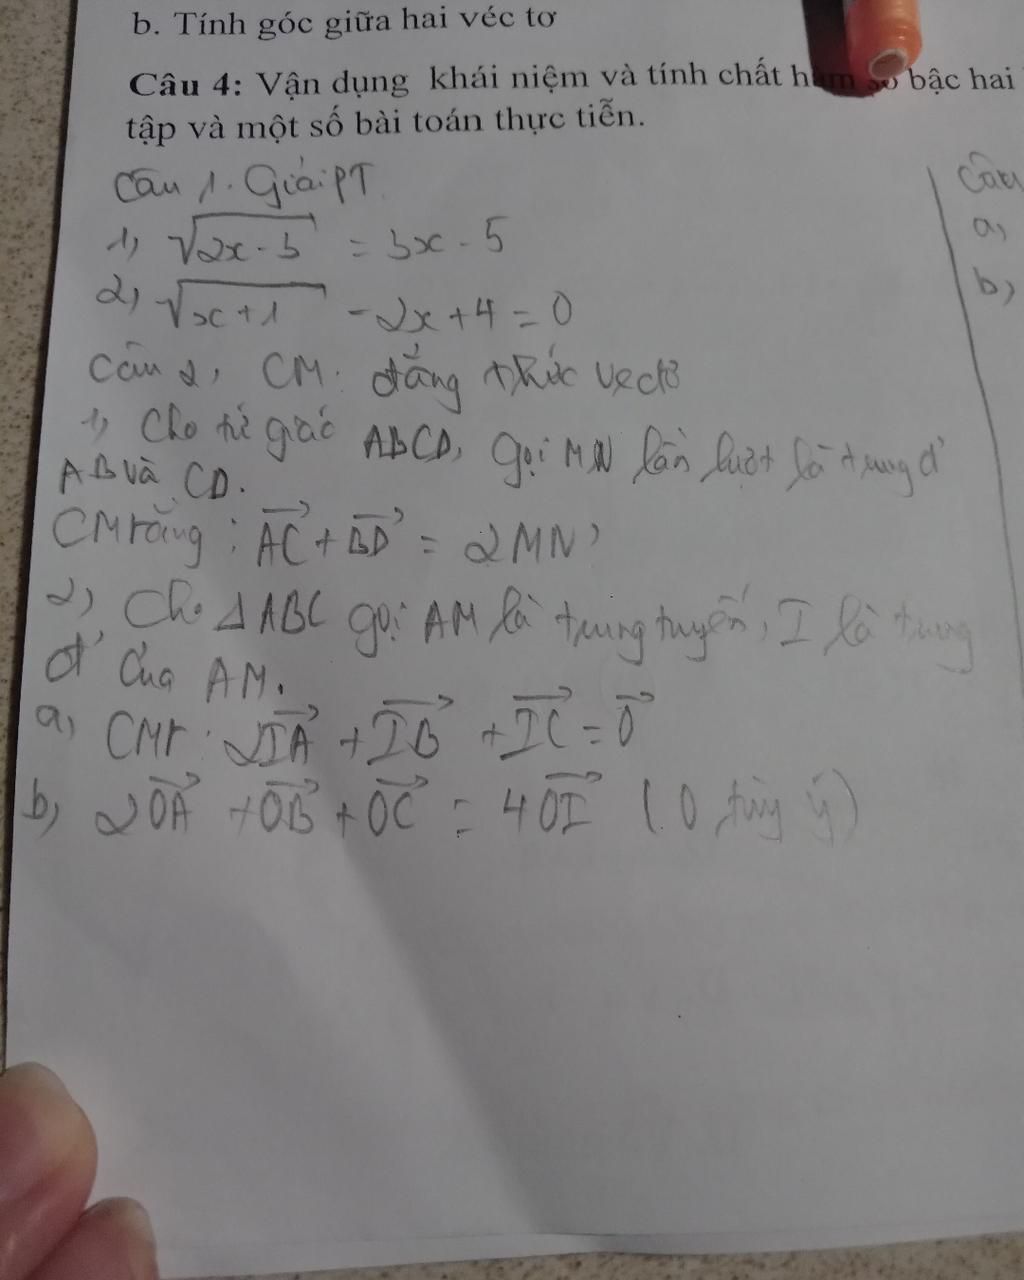 b. Tính góc giữa hai véc tơ
Câu 4: Vận dụng khái niệm và tính chất hàm số bậc hai
tập và một số bài toán thực tiễn.
Câu 1. Giải PT
1) √(2x - 3) = 3x - 5
2) √(x + 1) - 2x + 4 = 0
Câu 2, CM. đẳng thức vectơ
1) Cho tứ giác ABCD, gọi MN lần lượt là trung đ'
AB và CD.
CM rằng : \overrightarrow{AC} + \overrightarrow{BD} = 2\overrightarrow{MN}
2) Cho ΔABC gọi AM là trung tuyến, I là trung
đ' của AM.
a) CMr : 2\overrightarrow{IA} + \overrightarrow{IB} + \overrightarrow{IC} = \overrightarrow{0}
b) 2\overrightarrow{OA} + \overrightarrow{OB} + \overrightarrow{OC} = 4\overrightarrow{OI} (O tùy ý)
Câu
a)
b)